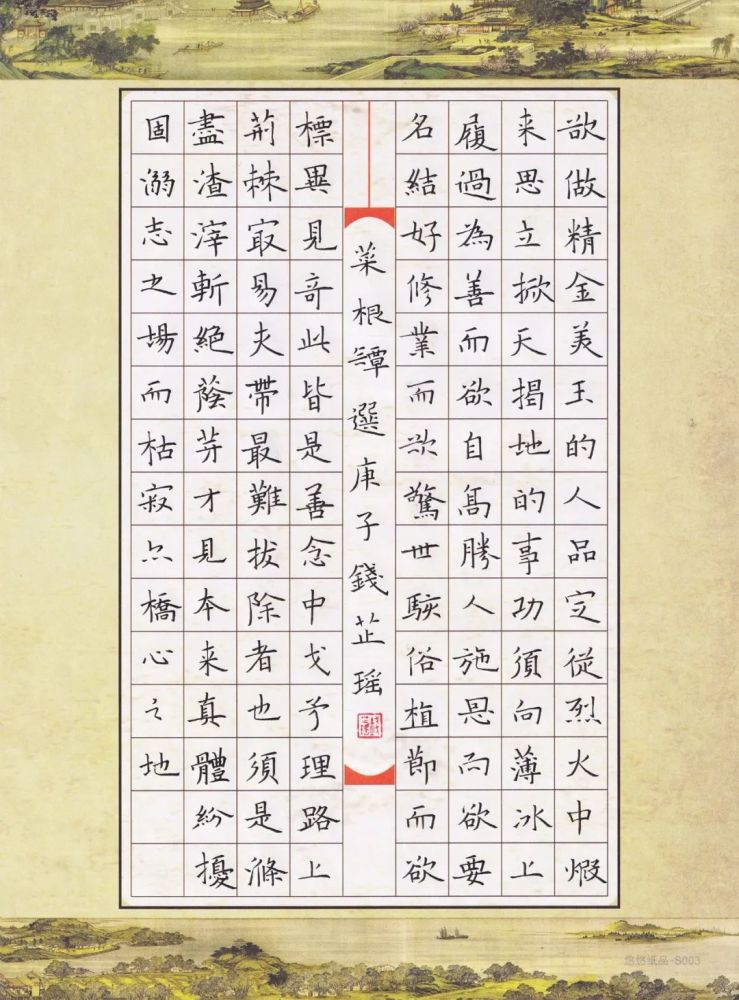 欲做精金美玉的人品定從烈火中煅
来思立掀天揭地的事功須向薄冰上
履過為善而欲自髙勝人施恩而欲要
名結好修業而欲驚世駭俗植節而欲
菜根譚選庚子錢芷瑶
標異見奇此皆是善念中戈矛理路上
荊棘冣易夾帶最難拔除者也須是滌
盡渣滓斬絕蔭芽才見本来真體紛擾
固溺志之場而枯寂亦橋心之地
悠悠纸品-S003